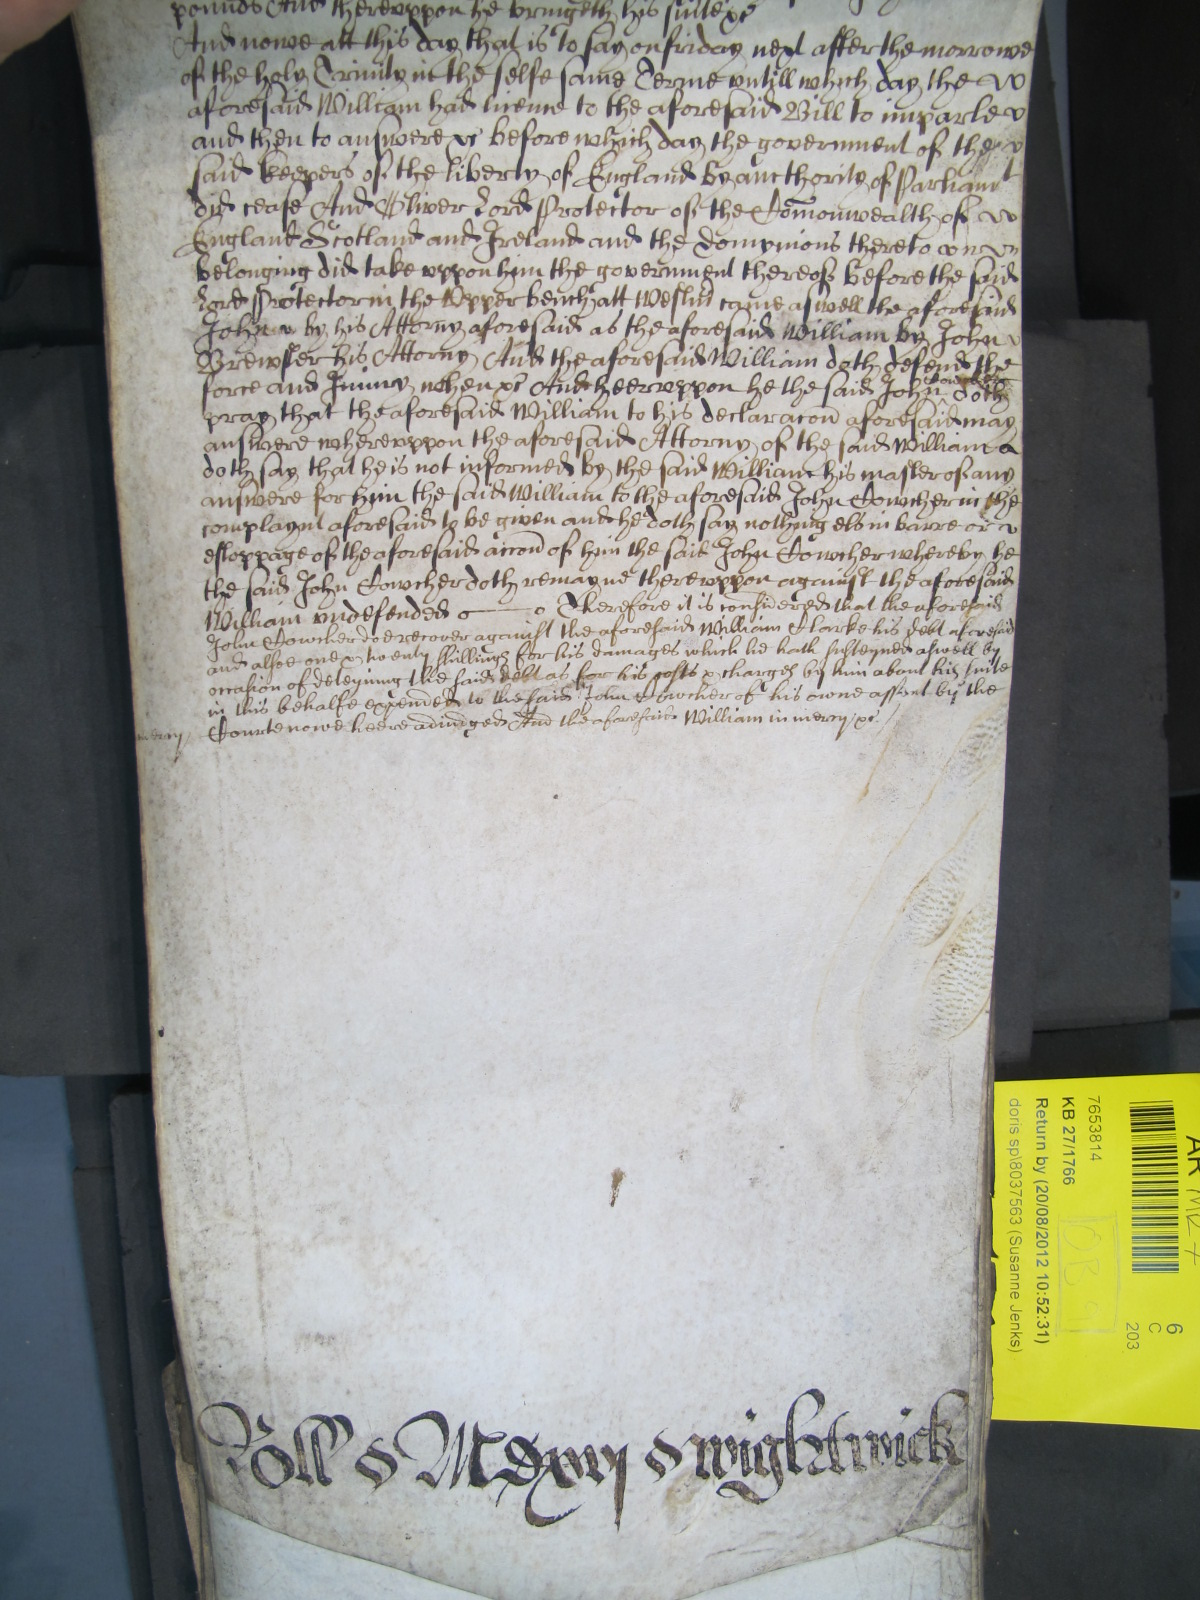 pounds And thereuppon he bringeth his suite &c
And nowe att this day that is to say on friday next after the morrowe
of the holy Trinity in the selfe same Terme untill which day the
aforesaid William had licence to the aforesaid Bill to imparle
and then to answere &c before which day the government of the
said keepers of the liberty of England by aucthority of Parliamt
did cease And Oliver Lord Protector of the Comonwealth of
England Scotland and Ireland and the Dominions thereto
belonging did take uppon him the government thereof before the said
Lord Protector in the Upper bench att Westm came aswell the aforesaid
John by his Attorny aforesaid as the aforesaid William by John
Brewster his Attorny And the aforesaid William doth defend the
force and Iniury when &c And heereuppon he the said John Cowcher doth
pray that the aforesaid William to his declaracon aforesaid may
answere whereuppon the aforesaid Attorny of the said William
doth say that he is not informed by the said William his master of any
answere for him the said William to the aforesaid John Cowcher in the
complaynt aforesaid to be given and he doth say nothing els in barre or
estoppage of the aforesaid accon of him the said John Cowcher whereby he
the said John Cowcher doth remayne thereuppon against the aforesaid
William undefended Therefore it is considered that the aforesaid
John Cowcher doe recover against the aforesaid William Clarke his debt aforesaid
and alsoe one & twenty shillings for his damages which he hath susteyned aswell by
occasion of deteyning the said debt as for his costs & charges by him about his suite
in this behalfe expended to the said John Cowcher of his owne assent by the
Courte nowe heere adiudged And the aforesaid William in mercy &c
mercy
Roll MDxvj Wightwick
7653814
KB 27/1766
Return by (20/08/2012 10:52:31)
doris sp\8037563 (Susanne Jenks)
6
C
203